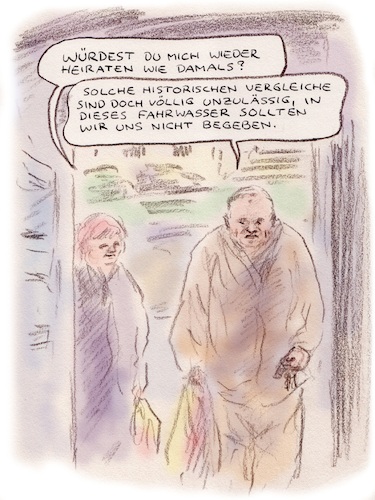 WÜRDEST DU MICH WIEDER
HEIRATEN WIE DAMALS?
SOLCHE HISTORISCHEN VERGLEICHE
SIND DOCH VÖLLIG UNZULÄSSIG, IN
DIESES FAHRWASSER SOLLTEN
WIR UNS NICHT BEGEBEN.